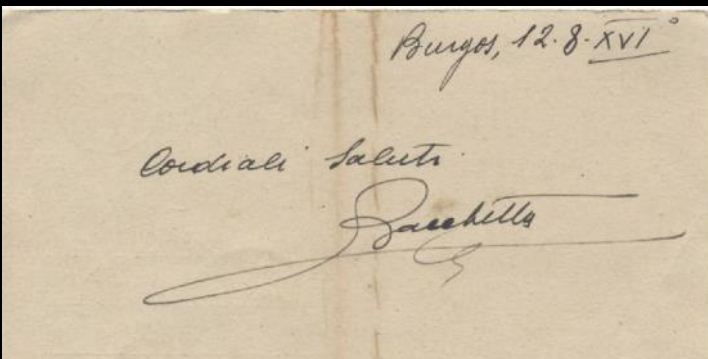 Burgos, 12.8.XVI°
Cordiali Saluti.
Bacchetta